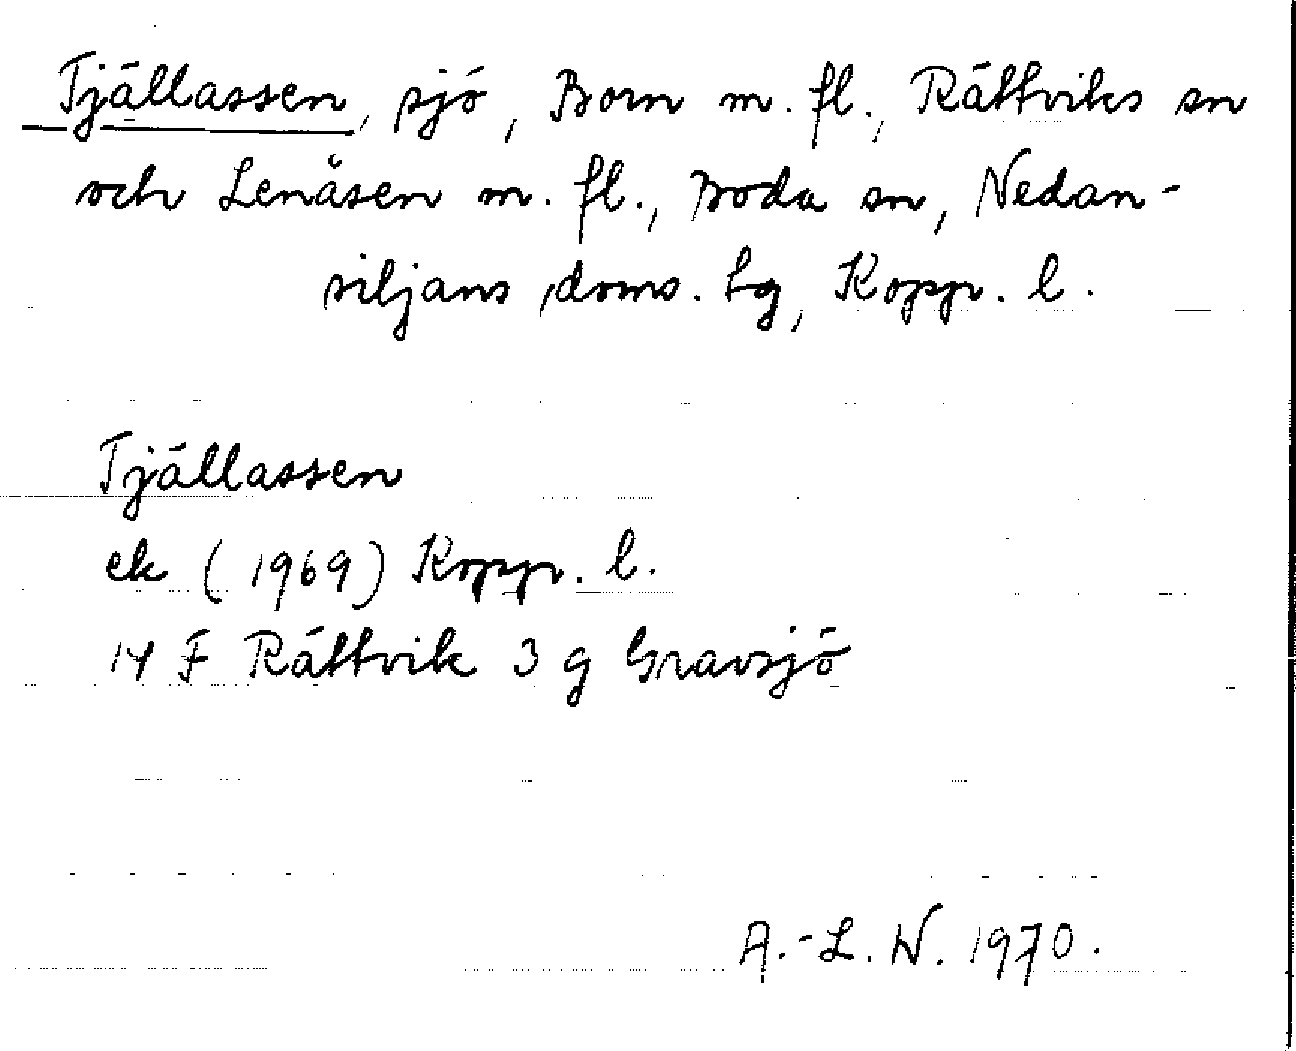 Tjällassen, sjö, Born m. fl., Rättviks sn
och Lenåsen m. fl., Boda sn, Nedan-
siljans doms. tg, Kopp. l.
Tjällassen
ek (1969) Kopp. l.
14 F Rättvik 3 g Gravsjö
A.-L. N. 1970.